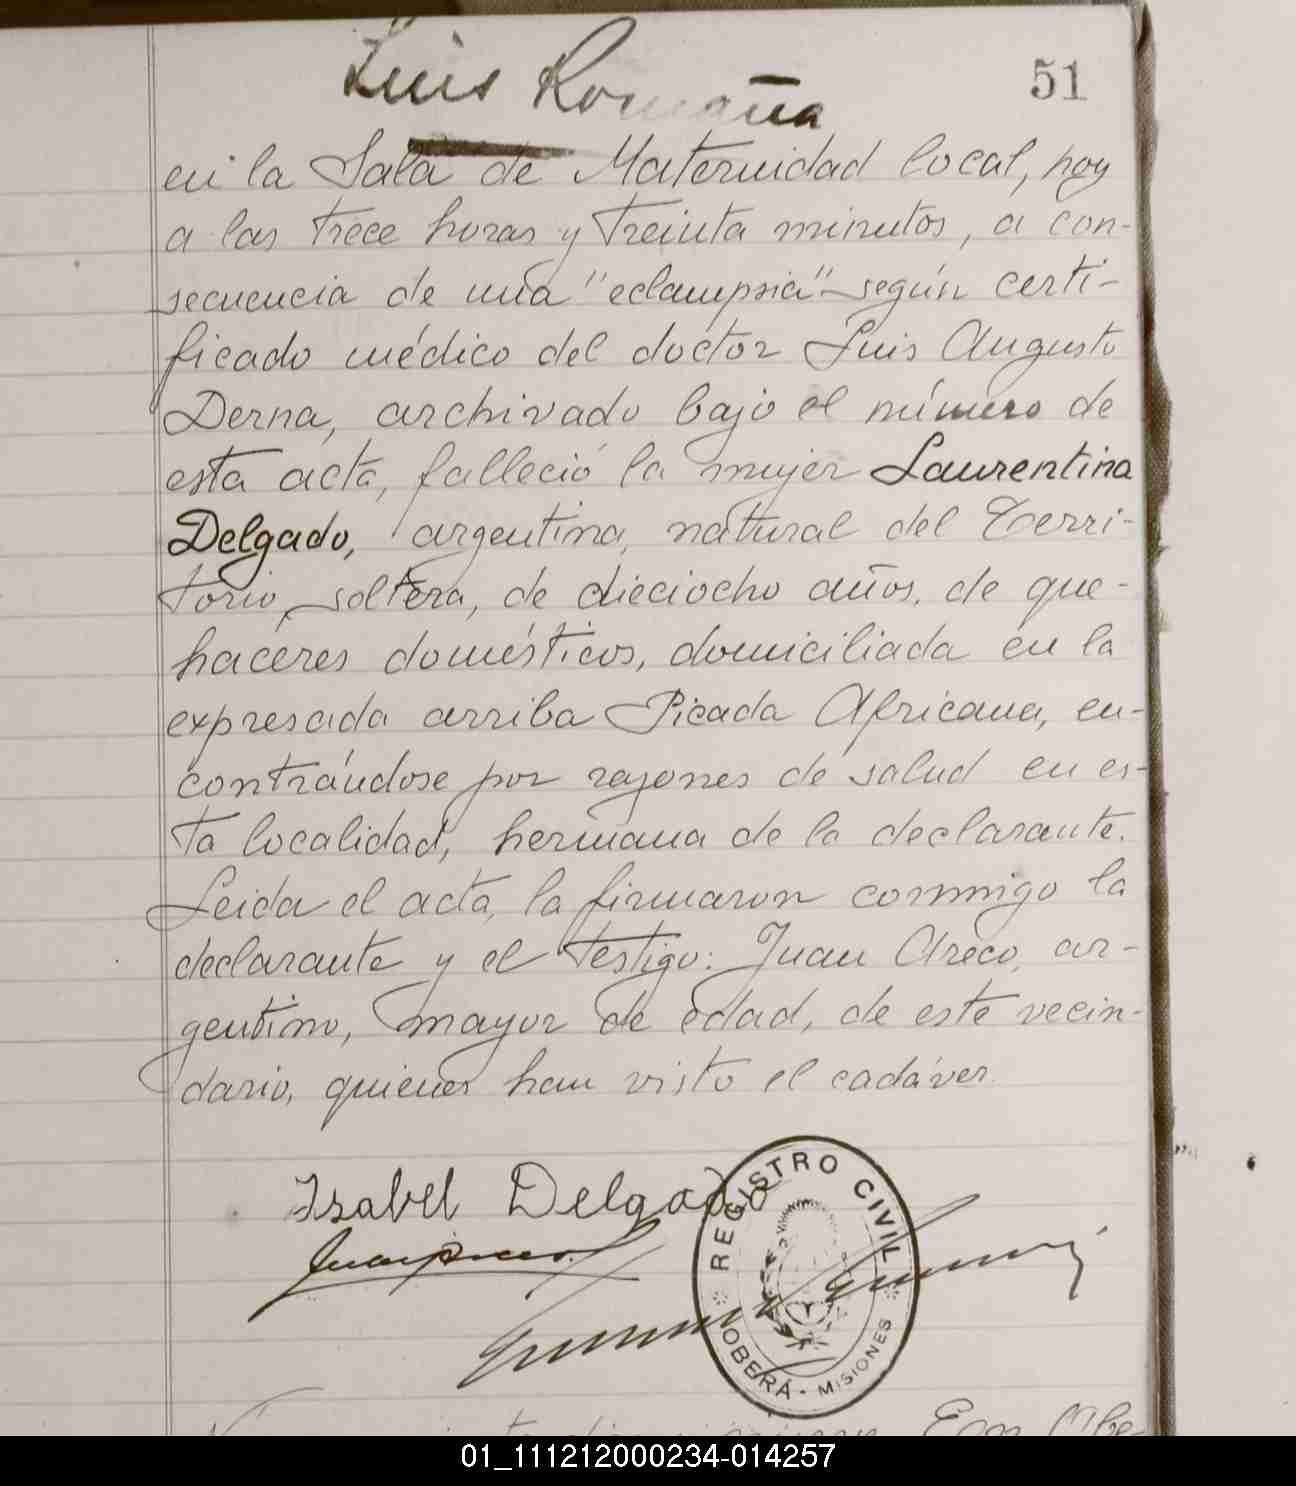 Luis Romaña
51
en la Sala de Maternidad local, hoy
a las trece horas y treinta minutos, a con-
secuencia de una "eclampsia" según certi-
ficado médico del doctor Luis Augusto
Derna, archivado bajo el número de
esta acta, falleció la mujer Laurentina
Delgado, argentina, natural del Terri-
torio, soltera, de dieciocho años, de que-
haceres domésticos, domiciliada en la
expresada arriba Picada Africana, en-
contrándose por razones de salud en es-
ta localidad, hermana de la declarante.
Leida el acta, la firmaron conmigo la
declarante y el testigo: Juan Areco, ar-
gentino, mayor de edad, de este vecin-
dario, quienes han visto el cadáver.
Isabel Delgado
REGISTRO CIVIL
OBERÁ - MISIONES
01_111212000234-014257